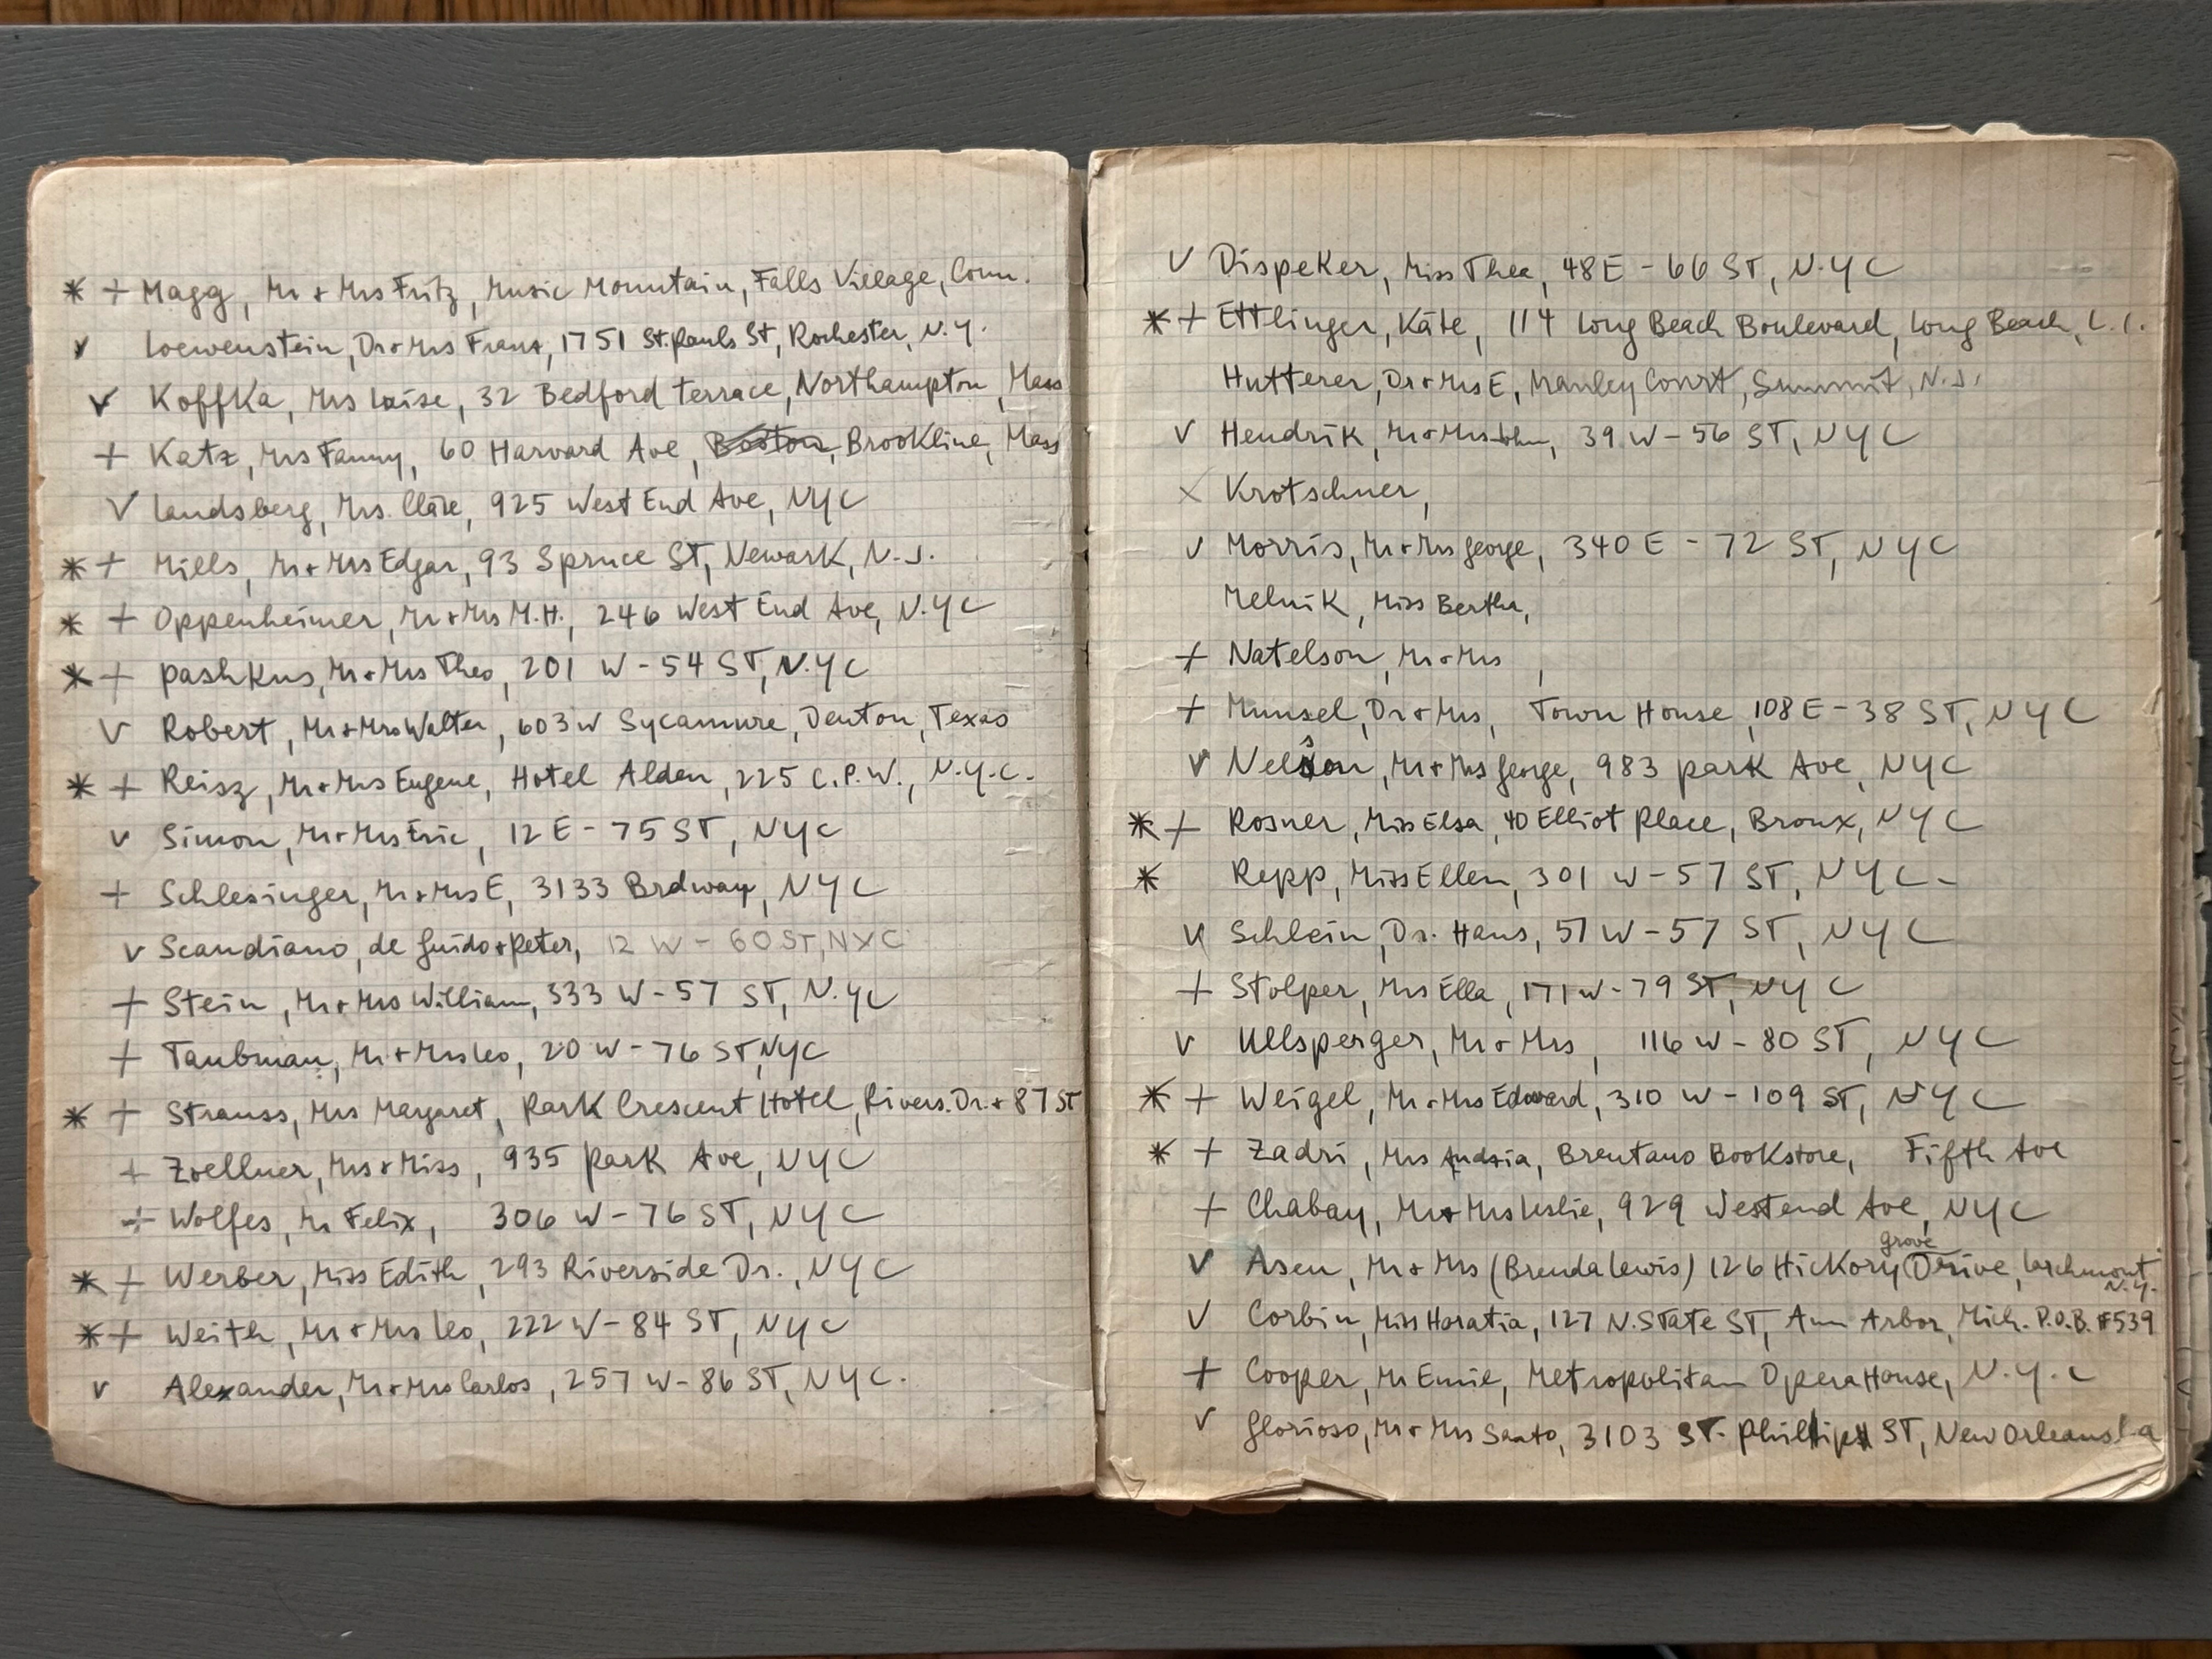 * + Magg, Mr + Mrs Fritz, Music Mountain, Falls Village, Conn.
v Loewenstein, Dr + Mrs Franz, 1751 St. Pauls St, Rochester, N.Y.
v Koffka, Mrs Luise, 32 Bedford terrace, Northampton, Mass
+ Katz, Mrs Fanny, 60 Harvard Ave, Boston, Brookline, Mass
v Landsberg, Mrs. Cläre, 925 West End Ave, NYC
* + Mills, Mr + Mrs Edgar, 93 Spruce ST, Newark, N.J.
* + Oppenheimer, Mr + Mrs M.H., 246 West End Ave, N.YC
* + Pashkus, Mr + Mrs Theo, 201 W - 54 ST, N.YC
v Robert, Mr + Mrs Walter, 603 W Sycamure, Denton, Texas
* + Reisz, Mr + Mrs Eugene, Hotel Alden, 225 C.P.W., N.Y.C.
v Simon, Mr + Mrs Eric, 12 E - 75 ST, NYC
+ Schlesinger, Mr + Mrs E, 3133 Brdway, NYC
v Scandiano, de Guido + Peter, 12 W - 60 ST, NYC
+ Stein, Mr + Mrs William, 333 W - 57 ST, N.YC
+ Taubman, Mr + Mrs Leo, 20 W - 76 ST, NYC
* + Strauss, Mrs Margaret, Park Crescent Hotel, Rivers. Dr. + 87 ST
+ Zoellner, Mrs + Miss, 935 Park Ave, NYC
+ Wolfes, Mr Felix, 306 W - 76 ST, NYC
* + Werber, Miss Edith, 293 Riverside Dr., NYC
* + Weith, Mr + Mrs Leo, 222 W - 84 ST, NYC
v Alexander, Mr + Mrs Carlos, 257 W - 86 ST, NYC.
v Dispeker, Miss Thea, 48 E - 66 ST, N.YC
* + Ettlinger, Käte, 114 Long Beach Boulevard, Long Beach, L.I.
Hutterer, Dr + Mrs E, Manley Court, Summit, N.J.
v Hendrik, Mr + Mrs John, 39 W - 56 ST, NYC
x Krotschner,
v Morris, Mr + Mrs George, 340 E - 72 ST, NYC
Melnik, Miss Bertha,
+ Natelson, Mr + Mrs ,
+ Munsel, Dr + Mrs, Town House, 108 E - 38 ST, NYC
v Nelson, Mr + Mrs George, 983 Park Ave, NYC
* + Rosner, Miss Elsa, 40 Elliot Place, Bronx, NYC
* Repp, Miss Ellen, 301 W - 57 ST, NYC -
v Schlein, Dr. Hans, 57 W - 57 ST, NYC
+ Stolper, Mrs Ella, 171 W - 79 ST, NYC
v Ullsperger, Mr + Mrs, 116 W - 80 ST, NYC
* + Weigel, Mr + Mrs Edward, 310 W - 109 ST, NYC
* + Zadri, Mrs Brentano Bookstore, Fifth Ave
+ Chabay, Mr + Mrs Leslie, 929 Westend Ave, NYC
v Asen, Mr + Mrs (Brenda Lewis) 126 Hickory grove Drive, Larchmont N.Y.
v Corbin, Miss Haratia, 127 N. State ST, Ann Arbor, Mich. P.O.B. #539
+ Cooper, Mr Emie, Metropolitan Opera House, N.Y.C
v Glorioso, Mr + Mrs Santo, 3103 ST. Phillip ST, New Orleans La